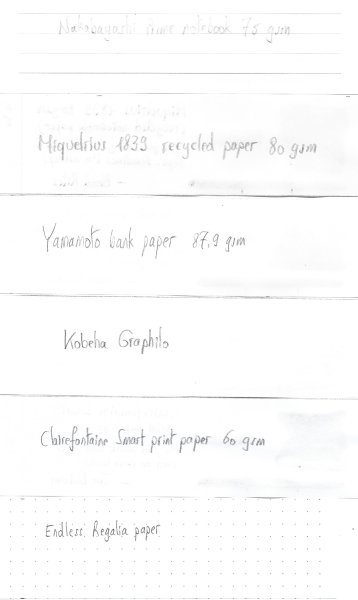 Nakabayashi mme notebook 75 gsm
Miquelrius 1839 recycled paper 80 gsm
Yamamoto bank paper 87,9 gsm
Kobeha Graphilo
Clairefontaine Smart print paper 60 gsm
Endless Regalia paper